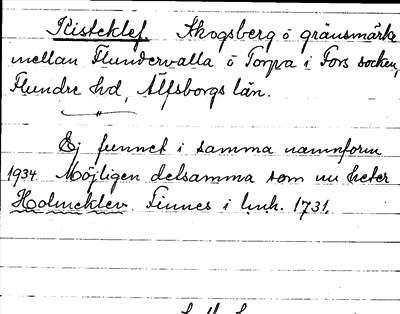 Risteklef. Skogsberg o gränsmärke
mellan Flundervalla o Torpa i Fors socken,
Flundre hd, Älfsborgs län.
Ej funnet i samma namnform
1934. Möjligen delsamma som nu heter
Holmeklev. Finnes i l.m.h. 1731.